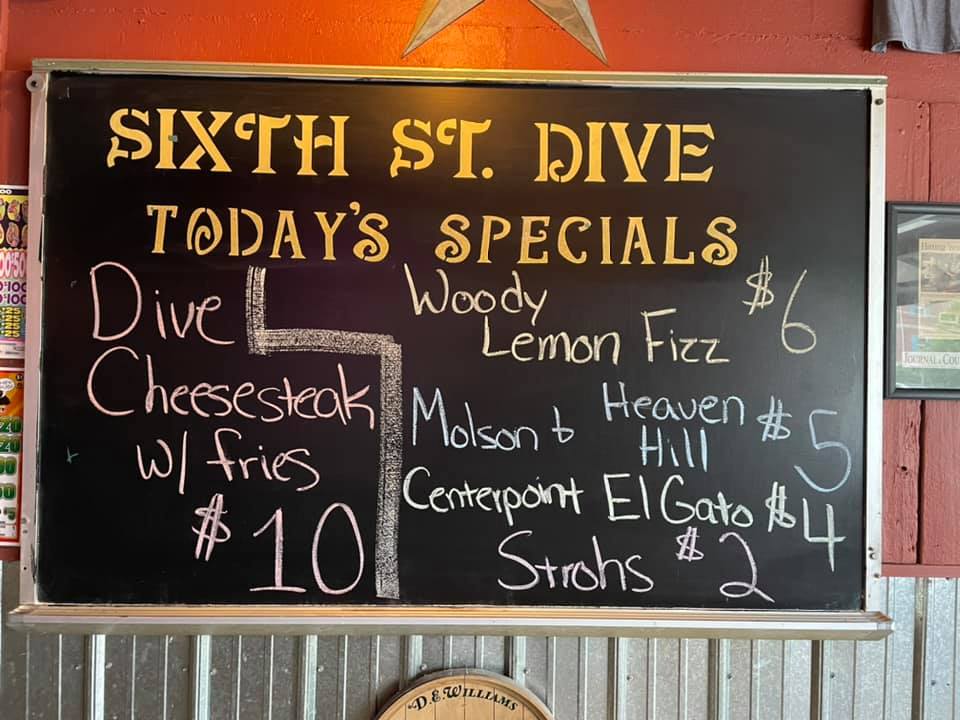 SIXTH ST. DIVE
TODAY'S SPECIALS
Dive
Cheesesteak
w/ fries
$10
Woody
Lemon Fizz $6
Molson & Heaven Hill $5
Centerpoint El Gato $4
Strohs $2
JOURNAL & COU
D.E. WILLIAMS